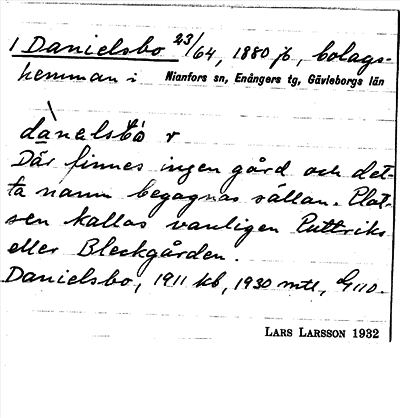 1 Danielsbo 23/64, 1880 jb, bolags-
hemman i Nianfors sn, Enångers tg, Gävleborgs län
dànelsbò r
Där finnes ingen gård och det-
ta namn begagnas sällan. Plat-
sen kallas vanligen Puttriks
eller Bleckgården.
Danielsbo, 1911 kb, 1930 mtl, G110.
LARS LARSSON 1932